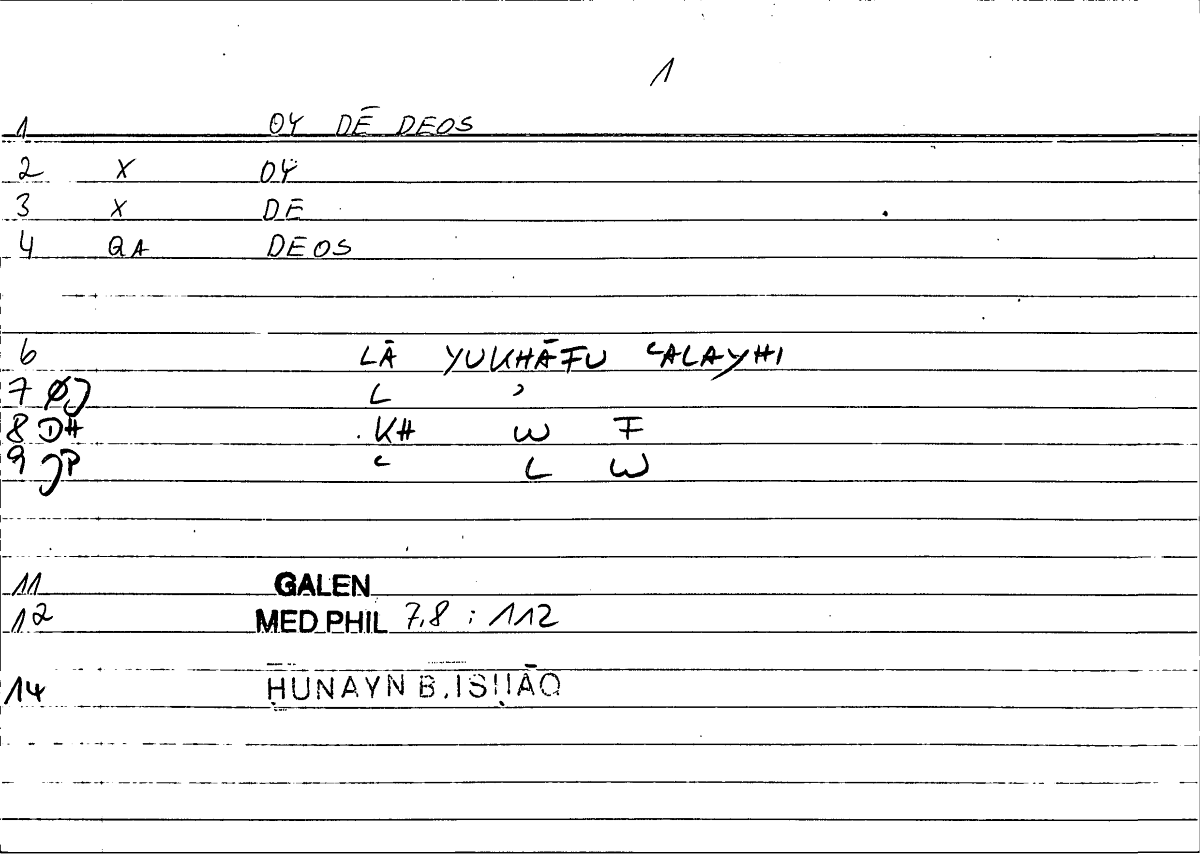 1
1 OY DĒ DEOS
2 X OY
3 X DE
4 QA DEOS
6 LĀ YUKHĀFU ʿALAYHI
7 ØJ L ʾ
8 DH KH W F
9 JP ʿ L W
11 GALEN
12 MED PHIL 7,8 : 112
14 ḤUNAYN B. ISḤĀQ